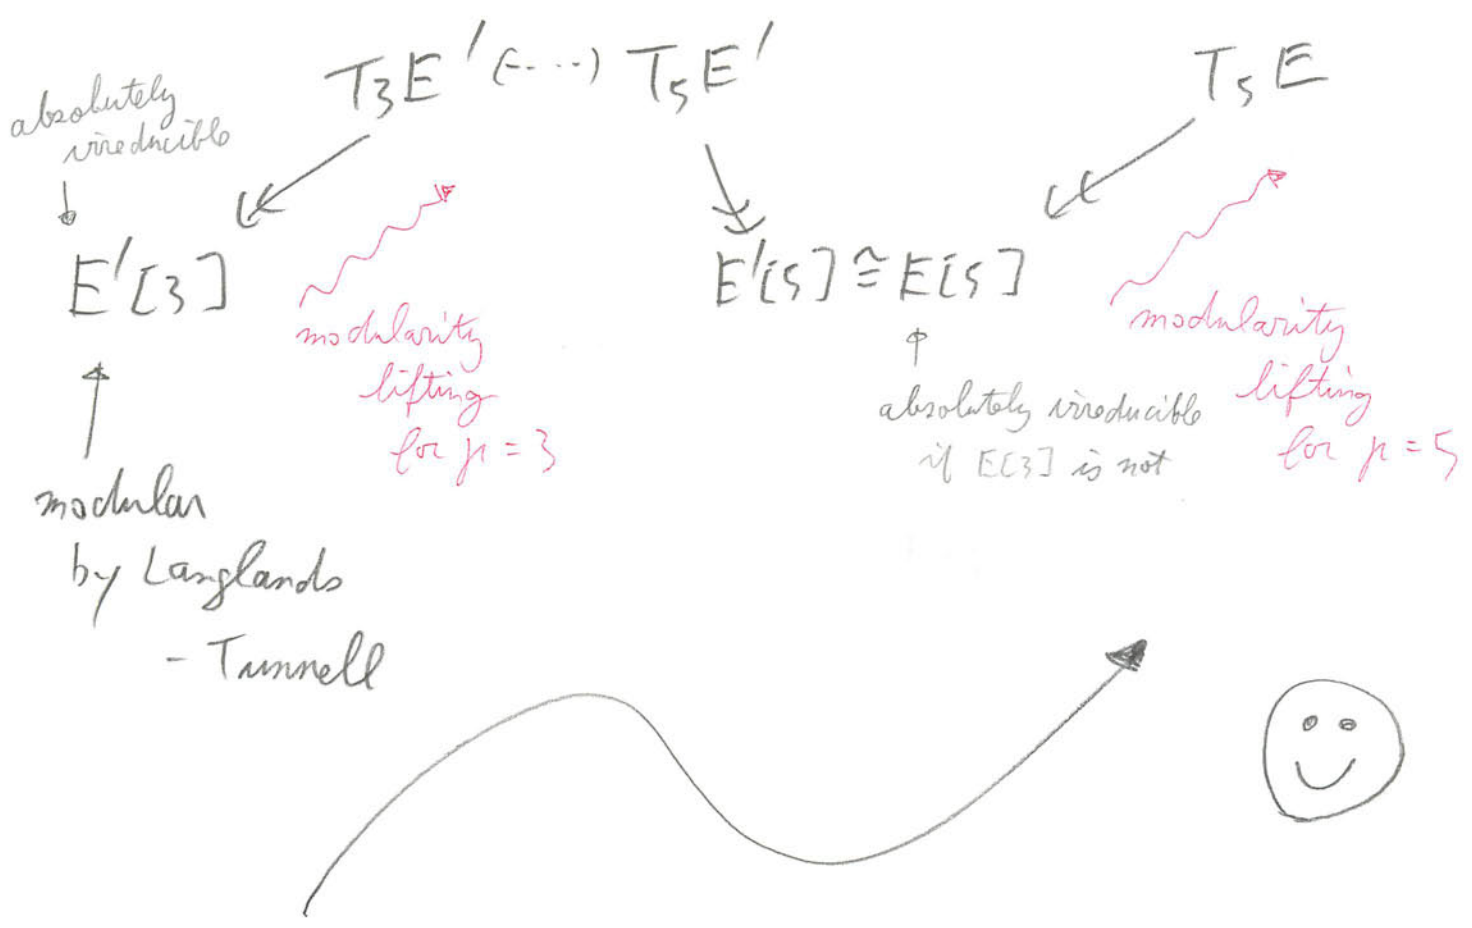 T₃E′ (⋯) T₅E′
T₅E
absolutely
irreducible
E′[3]
E′[5] ≅ E[5]
modularity
lifting
for p = 3
modularity
lifting
for p = 5
absolutely irreducible
if E[3] is not
modular
by Langlands
- Tunnell